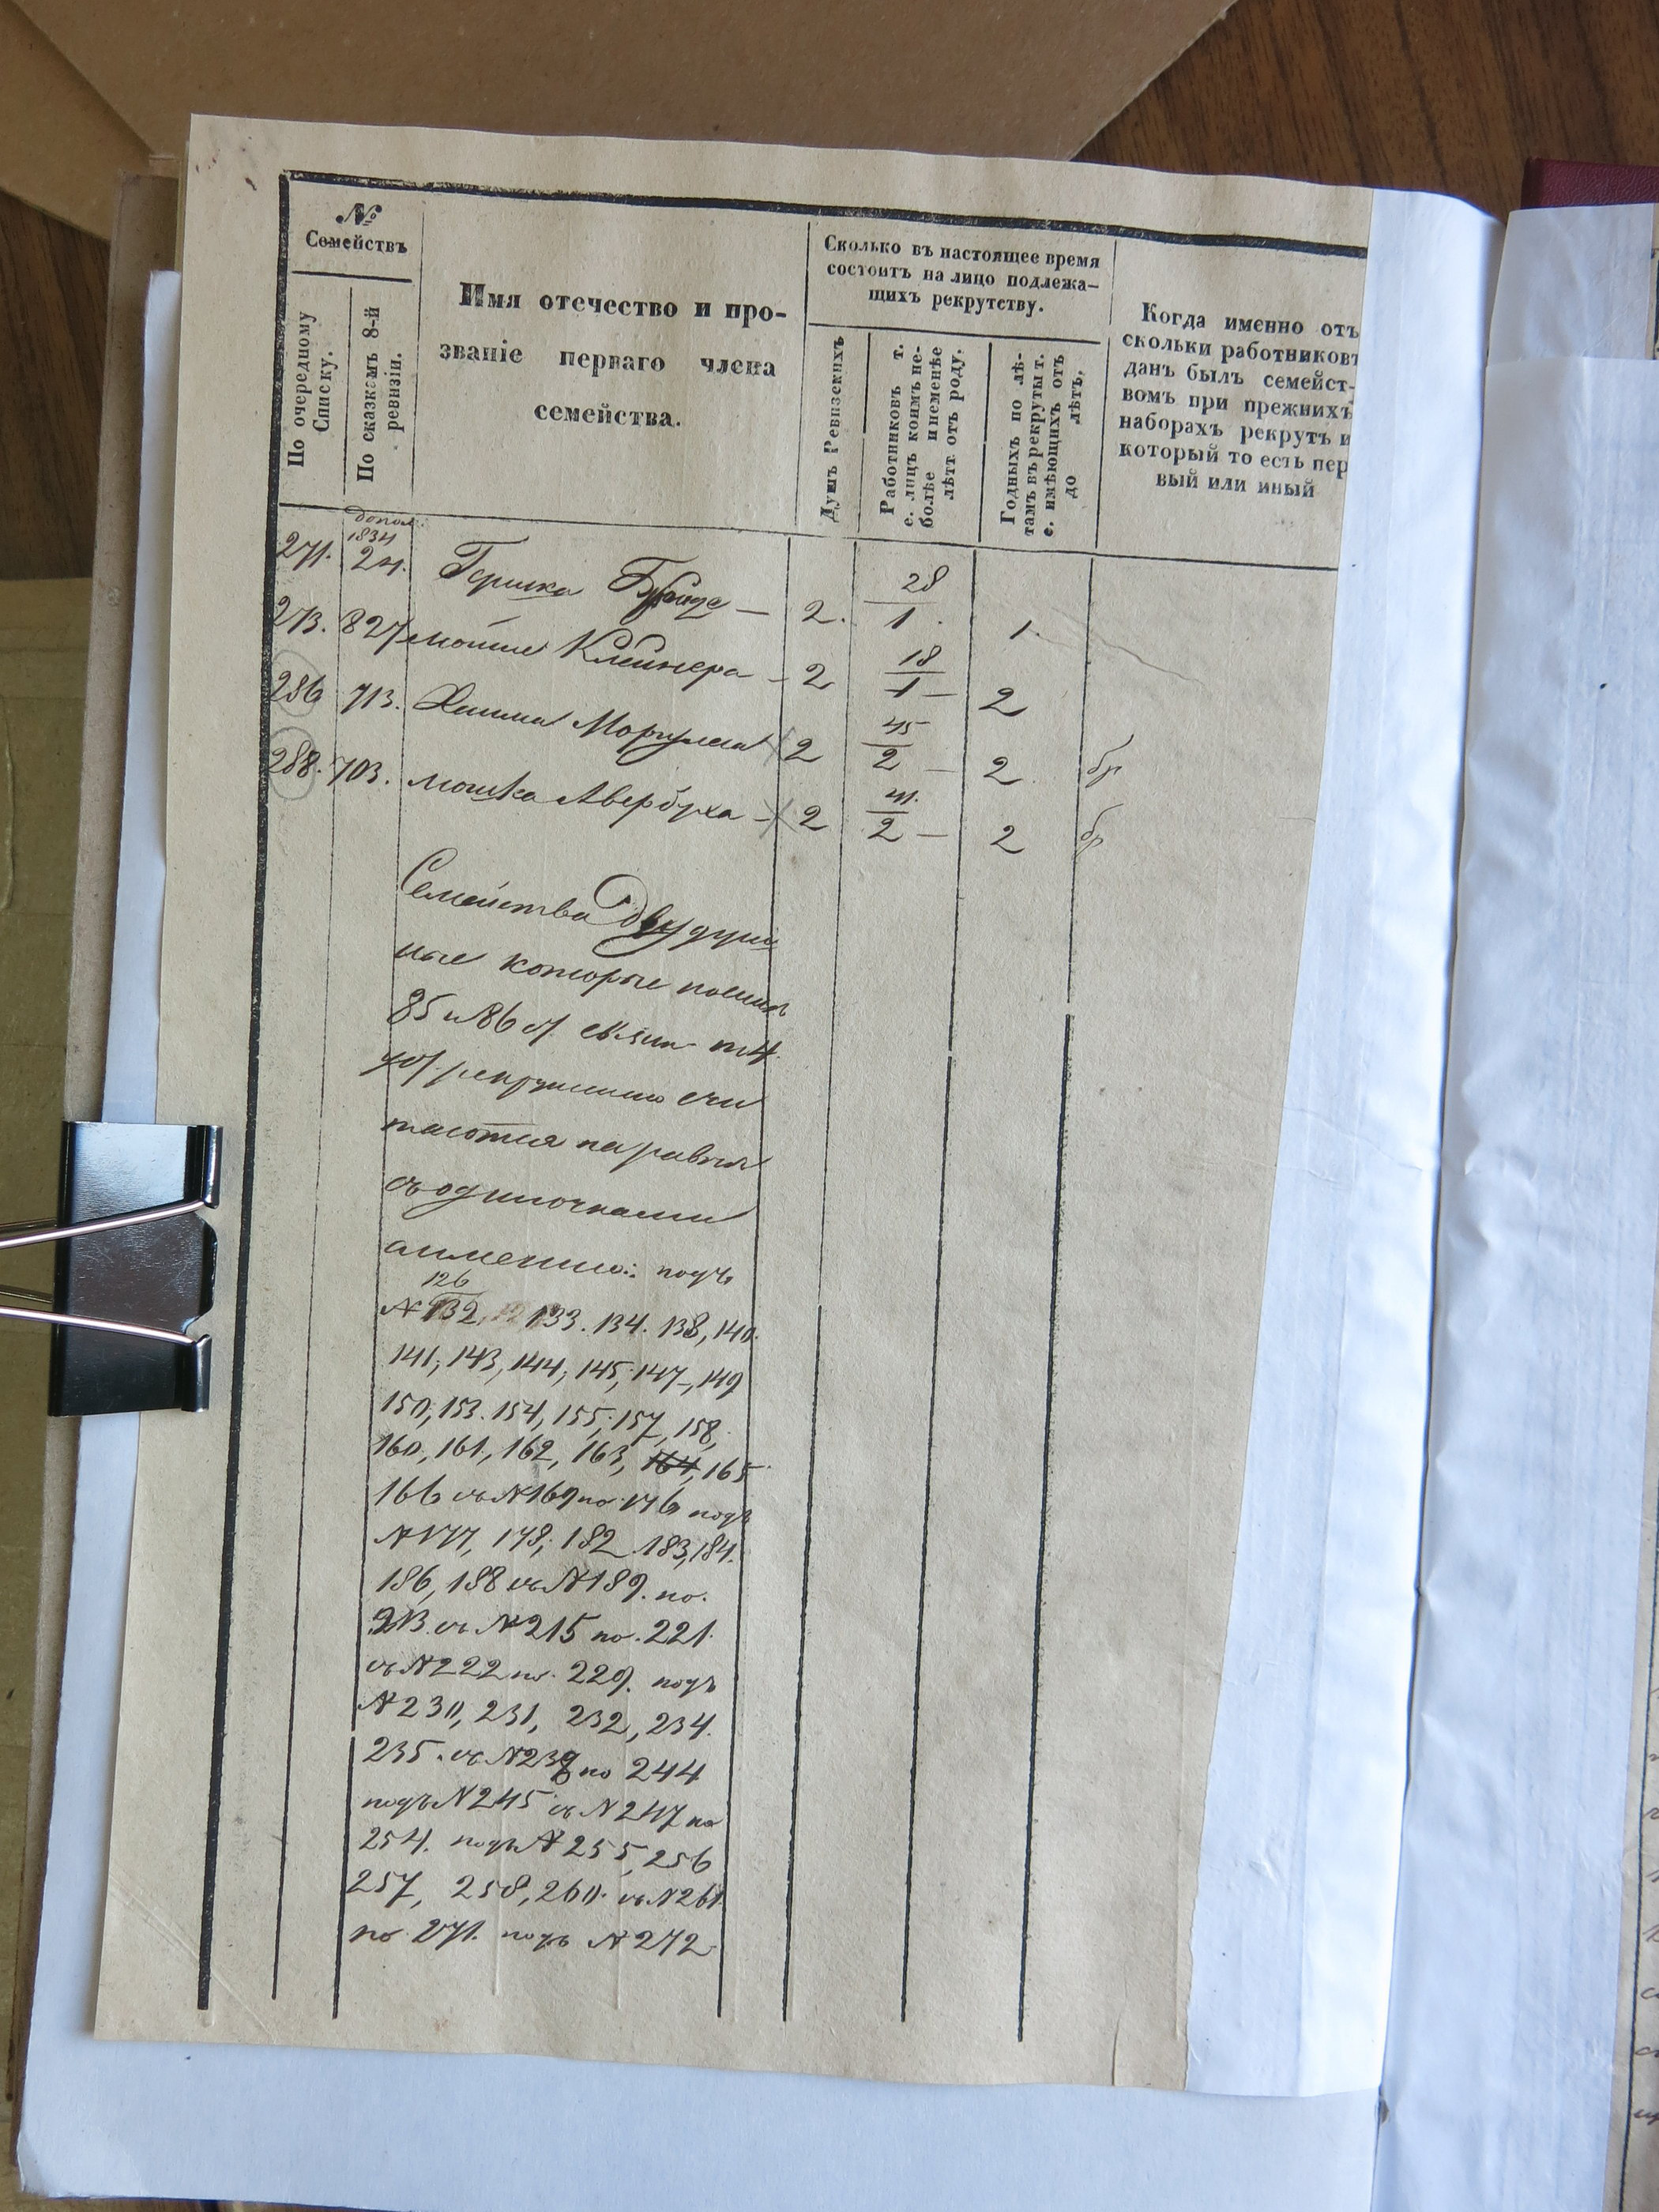 №
Семействъ
По очередному
Списку.
По сказкамъ 8-й
ревизіи.
Имя отечество и про-
званіе перваго члена
семейства.
Сколько въ настоящее время
состоитъ на лицо подлежа-
щихъ рекрутству.
Душъ Ревизскихъ
Работниковъ т.
е. лицъ коимъ не-
болѣе и неменѣе
лѣтъ отъ роду.
Годныхъ по лѣ-
тамъ въ рекруты т.
е. имѣющихъ отъ
до лѣтъ.
Когда именно отъ
скольки работниковъ
данъ былъ семейст-
вомъ при прежнихъ
наборахъ рекрутъ и
который то есть пер
вый или иный
допол.
1834
271. 24. Гершка — 2. 28/1. 1.
273. 827 Мошке Клейнера — 2 18/1 — 2
286 713. Хаима Моргулеса 2 45/2 — 2 бр
288. 703. Мошка Авербуха — 2 41./2 — 2 бр
Семейства Двудуш
ные которые
85 и 86
счи
таются на равнѣ
съ одиночками
а именно: подъ
126
№ 132, 133. 134. 138, 140.
141, 143, 144, 145, 147, 149
150, 153. 154, 155, 157, 158,
160, 161, 162, 163, 164, 165
166 съ №169 по 176 подъ
№177, 178, 182 183, 184.
186, 188 съ №189. по.
213. съ №215 по. 221.
съ №222 по. 229. подъ
№230, 231, 232, 234.
235. съ №238 по 244
подъ №245 съ №247 по
254. подъ №255, 256
257, 258, 260. съ №261
по 271. подъ №272